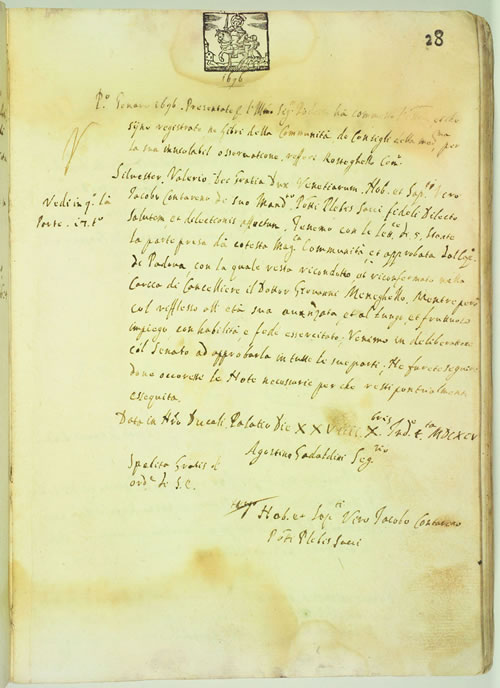 28
1696
P.o Gennaro 1696. Presentate
siino registrate ne libri della Communità de Consegli per
la sua inviolabil osservatione, rifferì Rosseghello Com.
Vedi in q.o la
Parte. c. t.o
Silvester Valerio Dei Gratia Dux Venetiarum. Nob. et Sap. Viro
Jacobo Contareno de suo Mand.o Pott.i Plebis Sacii fideli Dilecto
salutem et dilectionis affectum. Tenemo con le lett.e di 5. stante
la parte presa da cotesta Mag.ca Communità, et approbata dal Cap.
di Padova, con la quale resta ricondotto, et riconfermato nella
Carica di Cancelliere il Dottor Giovanni Meneghello. Mentre però
col riflesso all' età sua avanzata, et al lungo, et fruttuoso
impiego con habilità, e fede essercitato; Venimo in deliberatione
col Senato ad approbarla in tutte le sue parti; Ne farete seguire
dove occoresse le Note necessarie perche resti pontualmente
essequita.
Data in N.ro Ducali Palatio Die XXVIII. X.bris Ind. MDCXCV
Agostino Gadaldini Seg.rio
Spedita Gratis d
ord.e di S.C.
Nob. et Sap.ti Viro Jacobo Contareno
Pott.i Plebis Sacii